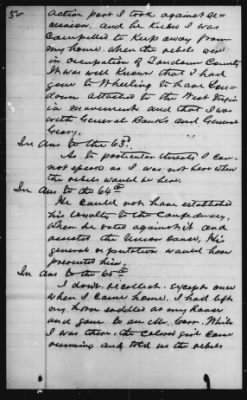 50
active part I took against se-
cession. and he knew I was
compelled to keep away from
my home when the rebels were
in occupation of Loudoun County
It was well known that I had
gone to Wheeling to have Lou-
doun attached to the West Virgin
ia movement and that I was
with General Banks and General
Geary.
In Ans to the 63d.
As to particular threats I can-
not speak as I was not here when
the rebels would be here.
In Ans to the 64th
He could not have established
his loyalty to the Confederacy,
when he voted against it and
assisted the Union cause. His
general reputation would have
prevented him.
In Ans to the 65th
I don't recollect. except once
when I came home. I had left
my horse saddled at my house
and gone to see Mr. While
I was there. the colored girl came
running and told us the rebels